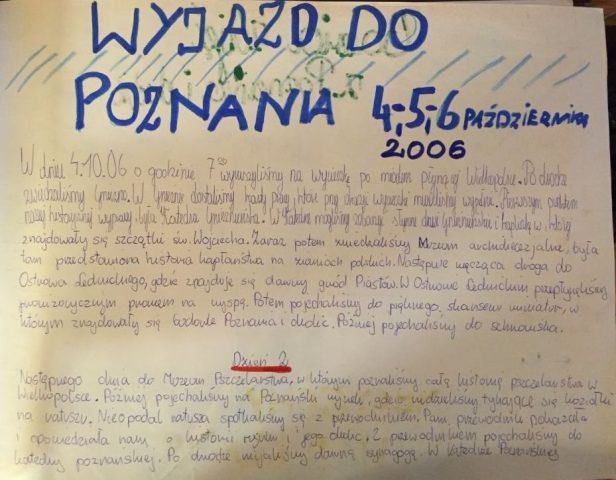 WYJAZD DO
POZNANIA 4,5,6 PAŹDZIERNIKA
2006
W dniu 4.10.06 o godzinie 7⁰⁰ wyruszyliśmy na wycieczkę po naszej pięknej Wielkopolsce. Po drodze
zwiedzaliśmy Gniezno. W Gnieźnie dostaliśmy karty pracy, które przy okazji wycieczki musieliśmy wypełnić. Pierwszym punktem
naszej historycznej wyprawy była Katedra Gnieźnieńska. W Katedrze mogliśmy zobaczyć słynne drzwi Gnieźnieńskie i kapliczkę w której
znajdowały się szczątki św. Wojciecha. Zaraz potem zwiedzaliśmy Muzeum archidiecezjalne, była
tam przedstawiona historia kapłaństwa na ziemiach polskich. Następnie męcząca droga do
Ostrowa Lednickiego, gdzie znajduje się dawny gród Piastów. W Ostrowie Lednickim przepłynęliśmy
prowizorycznym promem na wyspę. Potem pojechaliśmy do pięknego skansenu miniatur, w
którym znajdowały się budowle Poznania i okolic. Później pojechaliśmy do schroniska.
Dzień 2
Następnego dnia do Muzeum Pszczelarstwa, w którym poznaliśmy całą historię pszczelarstwa w
Wielkopolsce. Później pojechaliśmy na Poznański rynek, gdzie widzieliśmy trykające się koziołki
na ratuszu. Nieopodal ratusza spotkaliśmy się z przewodnikiem. Pani przewodnik pokazała
i opowiedziała nam o historii rynku i jego okolic, Z przewodnikiem pojechaliśmy do
katedry poznańskiej. Po drodze mijaliśmy dawną synagogę. W Katedrze Poznańskiej